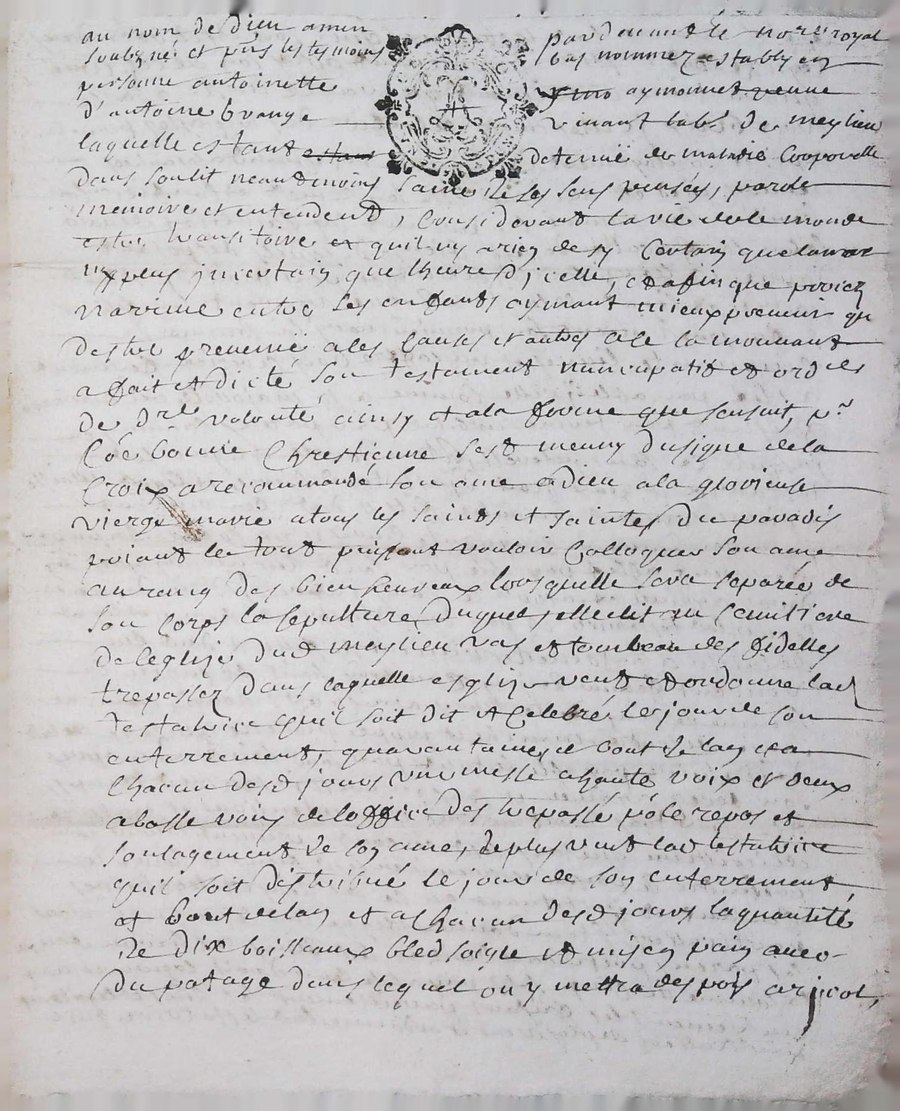 au nom de dieu amen pardevant le no.re royal
soubzné et pnts les tesmoins bas nommez establyen
personne antoinette aymonnet venue
d'antoine brange vivant lab.r de meylieu
laquelle estant detenuë de maladie Corporelle
dans son lit neautmoins saine de ses sens pensées, parole
memoire et entendent, Considerant la vie de le monde
estre transitoire et quil ny arien de sy Certain que la mort
ny plus jncertain que lheure djcelle, et afin que proces
narrive entre ses enfants aymant mieux prevenir que
destre prevenuë ales Causes et autres ace la mouvant
a fait et dicté son testament nuncupatif et ord.re de
de d.re volonté ainsy et ala forme que sensuit, p.r
Coe bonne Chrestienne sest munny du signe de la
Croix arecommandé son ame adieu ala glorieuse
vierge marie atous les saints et saintes du paradis
priant le tout puissant vouloir Colloquer son ame
au rang des bien heureux lorsquelle sera separée de
son corps la sepulture duquel ellelit au Cemitiere
de leglize dud meylieu vas et tombeau des fidelles
trepassez dans laquelle esglize veut et ordonne lad
testatrice quil soit dit et Celebré le jour de son
enterrement, quarantaine, et bout de lan et a
Chacun desd jours une messe ahaute voix et deux
abasse voix de loffice des trepassé p.r le repos et
soulagement de son ame, deplus veut lad testatrice
quil soit distribué le jour de son enterrement
et bout delan et a chacun desd jours laquantité
de dix boisseaux bled soigle et misen pain avec
du potage dans lequel on y mettra des pois aricot,